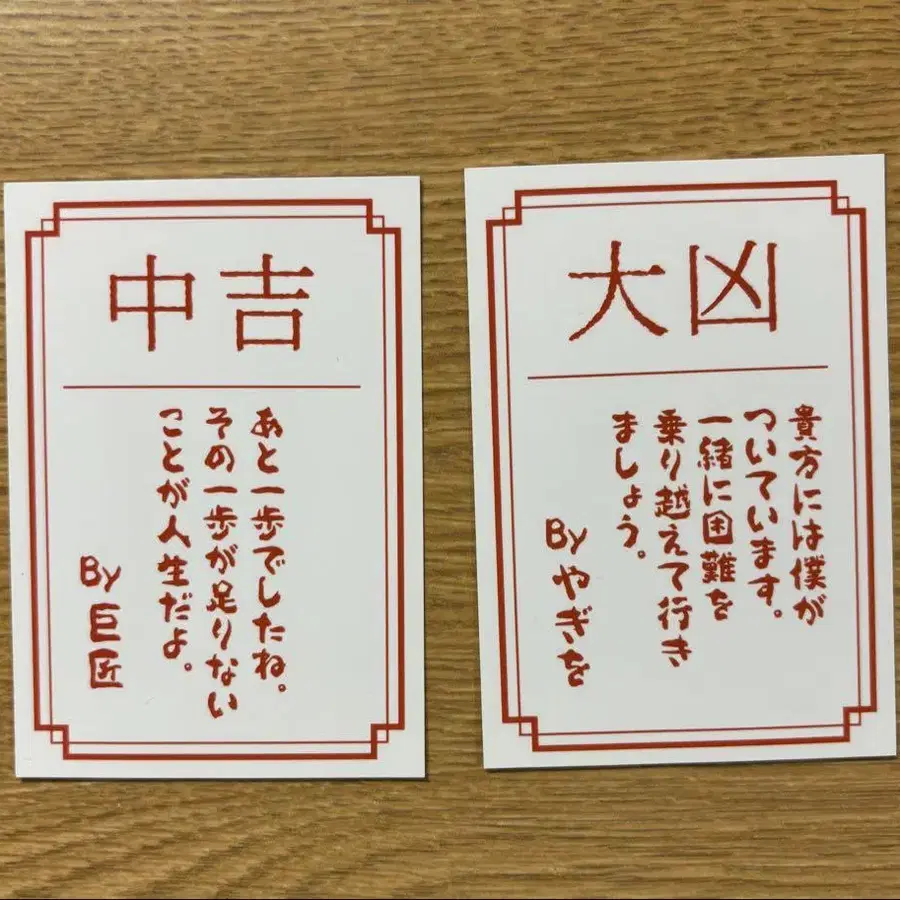 中吉
あと一歩でしたね。
その一歩が足りない
ことが人生だよ。
By 巨匠
大凶
貴方には僕が
ついています。
一緒に困難を
乗り越えて行き
ましょう。
By やぎを